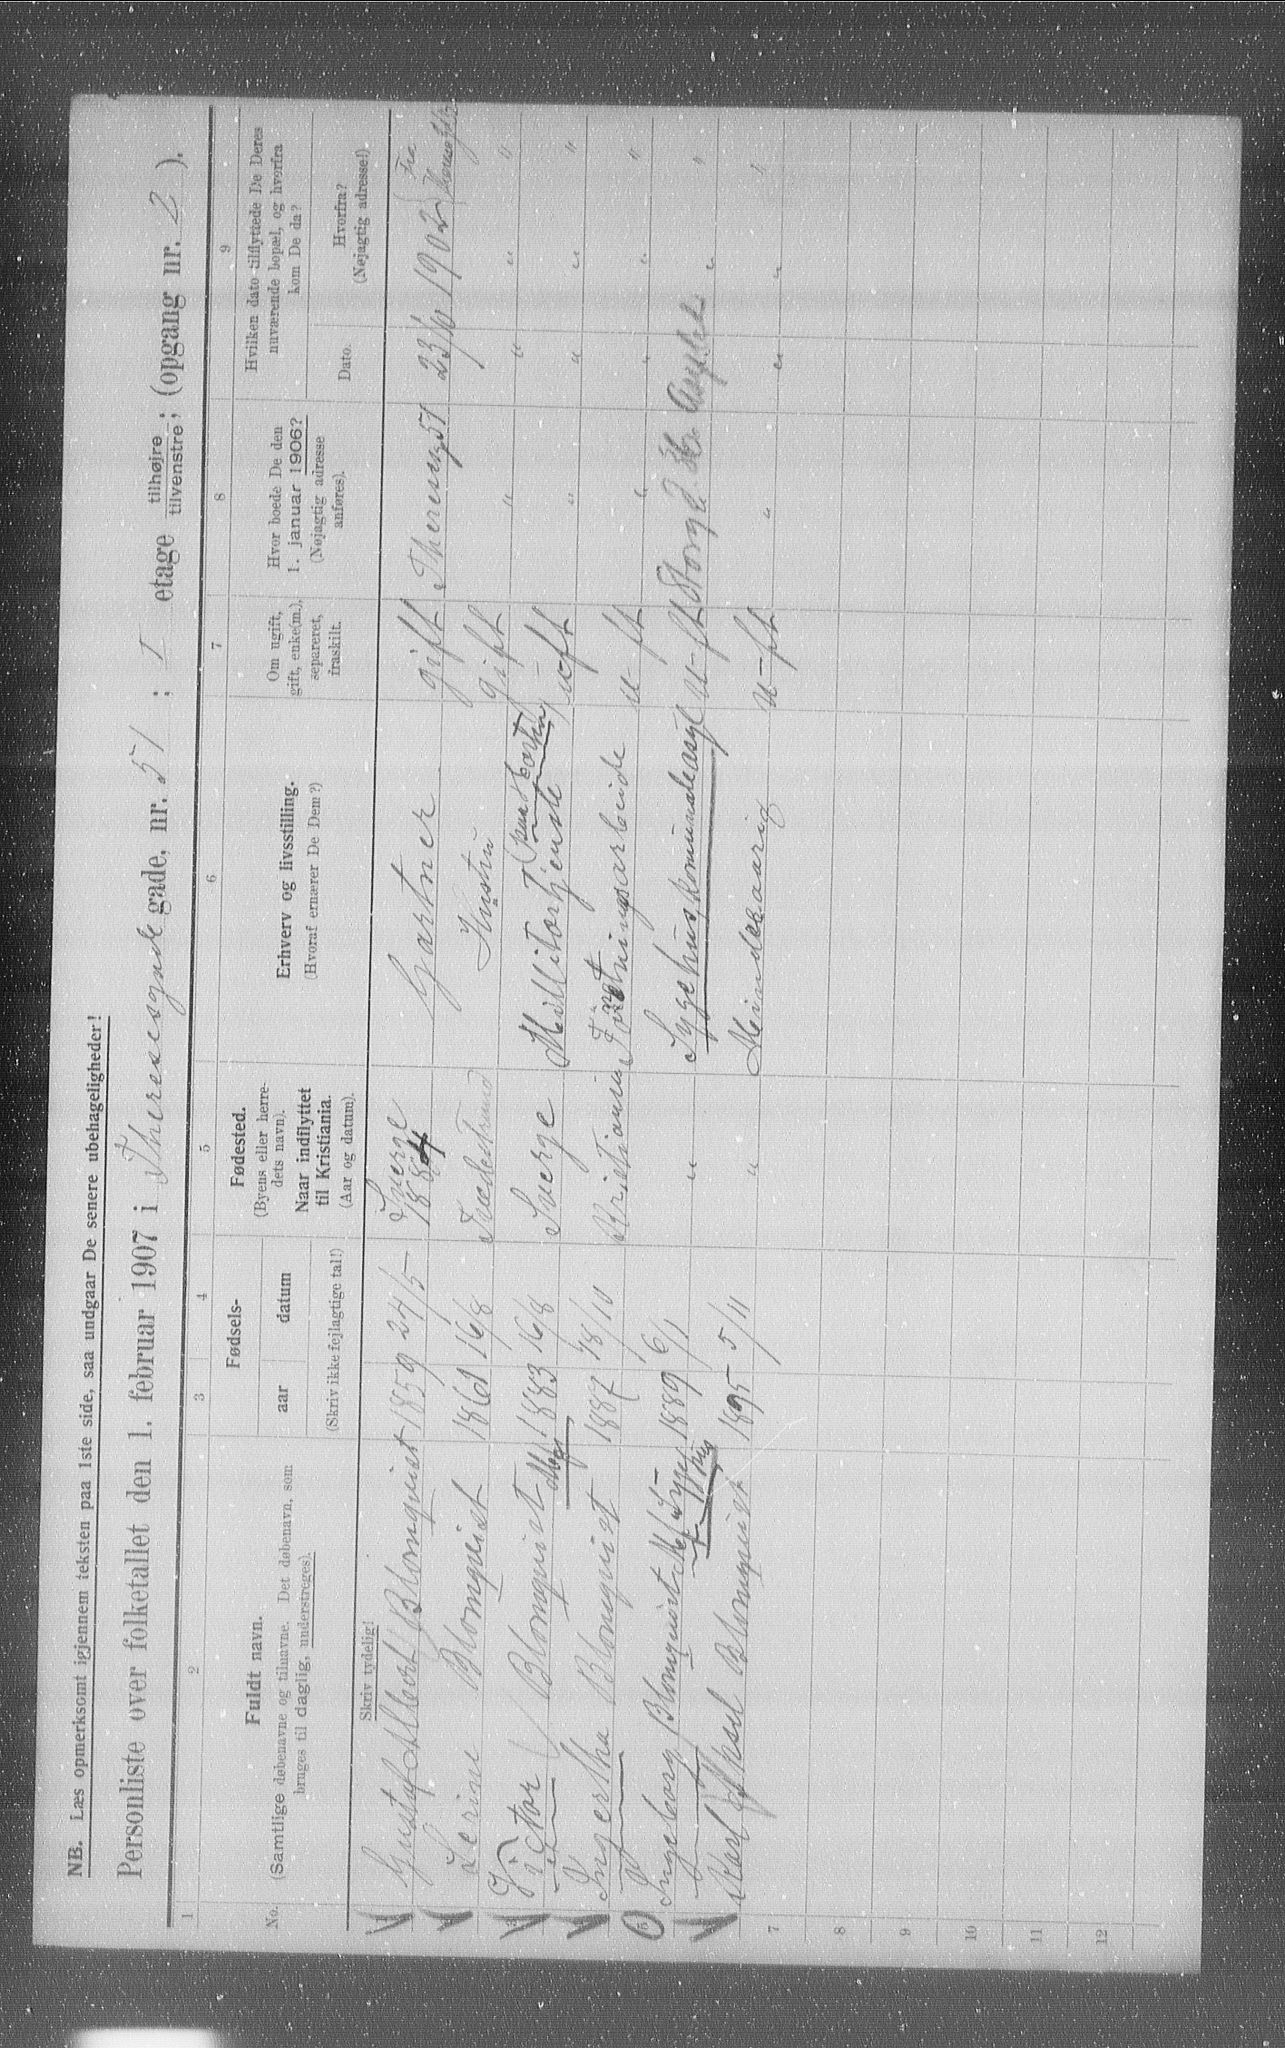 NB. Læs opmerksomt igjennem teksten paa 1ste side, saa undgaar De senere ubehageligheder!
Personliste over folketallet den 1. februar 1907 i Theresesgade gade, nr. 51 ; I etage tilhøjre tilvenstre; (opgang nr. 2 ).
1 2 3 4 5 6 7 8 9
No.
Fuldt navn.
(Samtlige døbenavne og tilnavne. Det døbenavn, som
bruges til daglig, understreges).
Fødsels-
aar datum
(Skriv ikke fejlagtige tal!)
Fødested.
(Byens eller herre-
dets navn).
Naar indflyttet
til Kristiania.
(Aar og datum).
Erhverv og livsstilling.
(Hvoraf ernærer De Dem?)
Om ugift,
gift, enke(m.),
separeret,
fraskilt.
Hvor boede De den
1. januar 1906?
(Nøjagtig adresse
anføres).
Hvilken dato tilflyttede De Deres
nuværende bopæl, og hvorfra
kom De da?
Dato.
Hvorfra?
(Nøjagtig adresse!).
Skriv tydelig!
Gustaf Albert Blomquist 1859 24/5 Sverge 1884 Gartner gift Theresesg 51 23/10 1902 Fra
Serine Blomqvist 1861 16/8 Hustru gift " " " "
3 Victor Blomquist 1883 16/8 Sverge Millitærtjeneste uft " " " "
Ingertha Blomquist 1887 18/10 Kristiania Forretningsarbeide u-ft " " " "
5 Ingeborg Blomquist 1889 6/1 " Sygehus, komunaleasyl u-ft Storg " "
Karl Aksel Blomquist 1895 5/11 " Mindreaarig u-ft " " " "
7
8
9
10
11
12